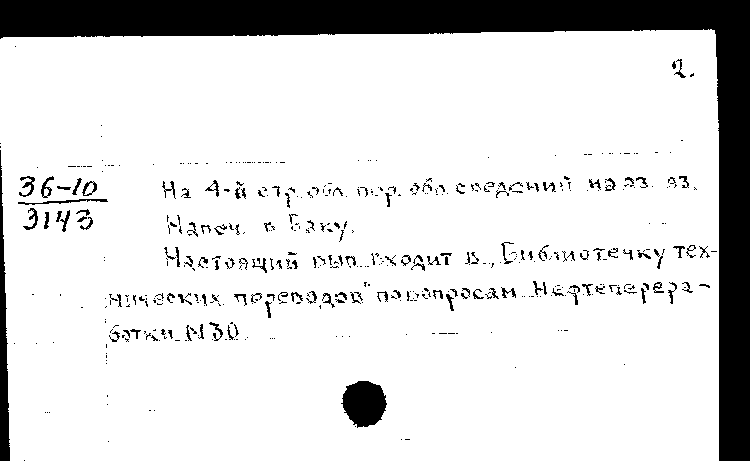 2.
36-10
3143
На 4-й стр. обл. пер. обл. сведений на аз. яз.
Напеч. в Баку.
Настоящий вып. входит в „Библиотечку тех-
нических переводов" по вопросам нефтеперера-
ботки №30